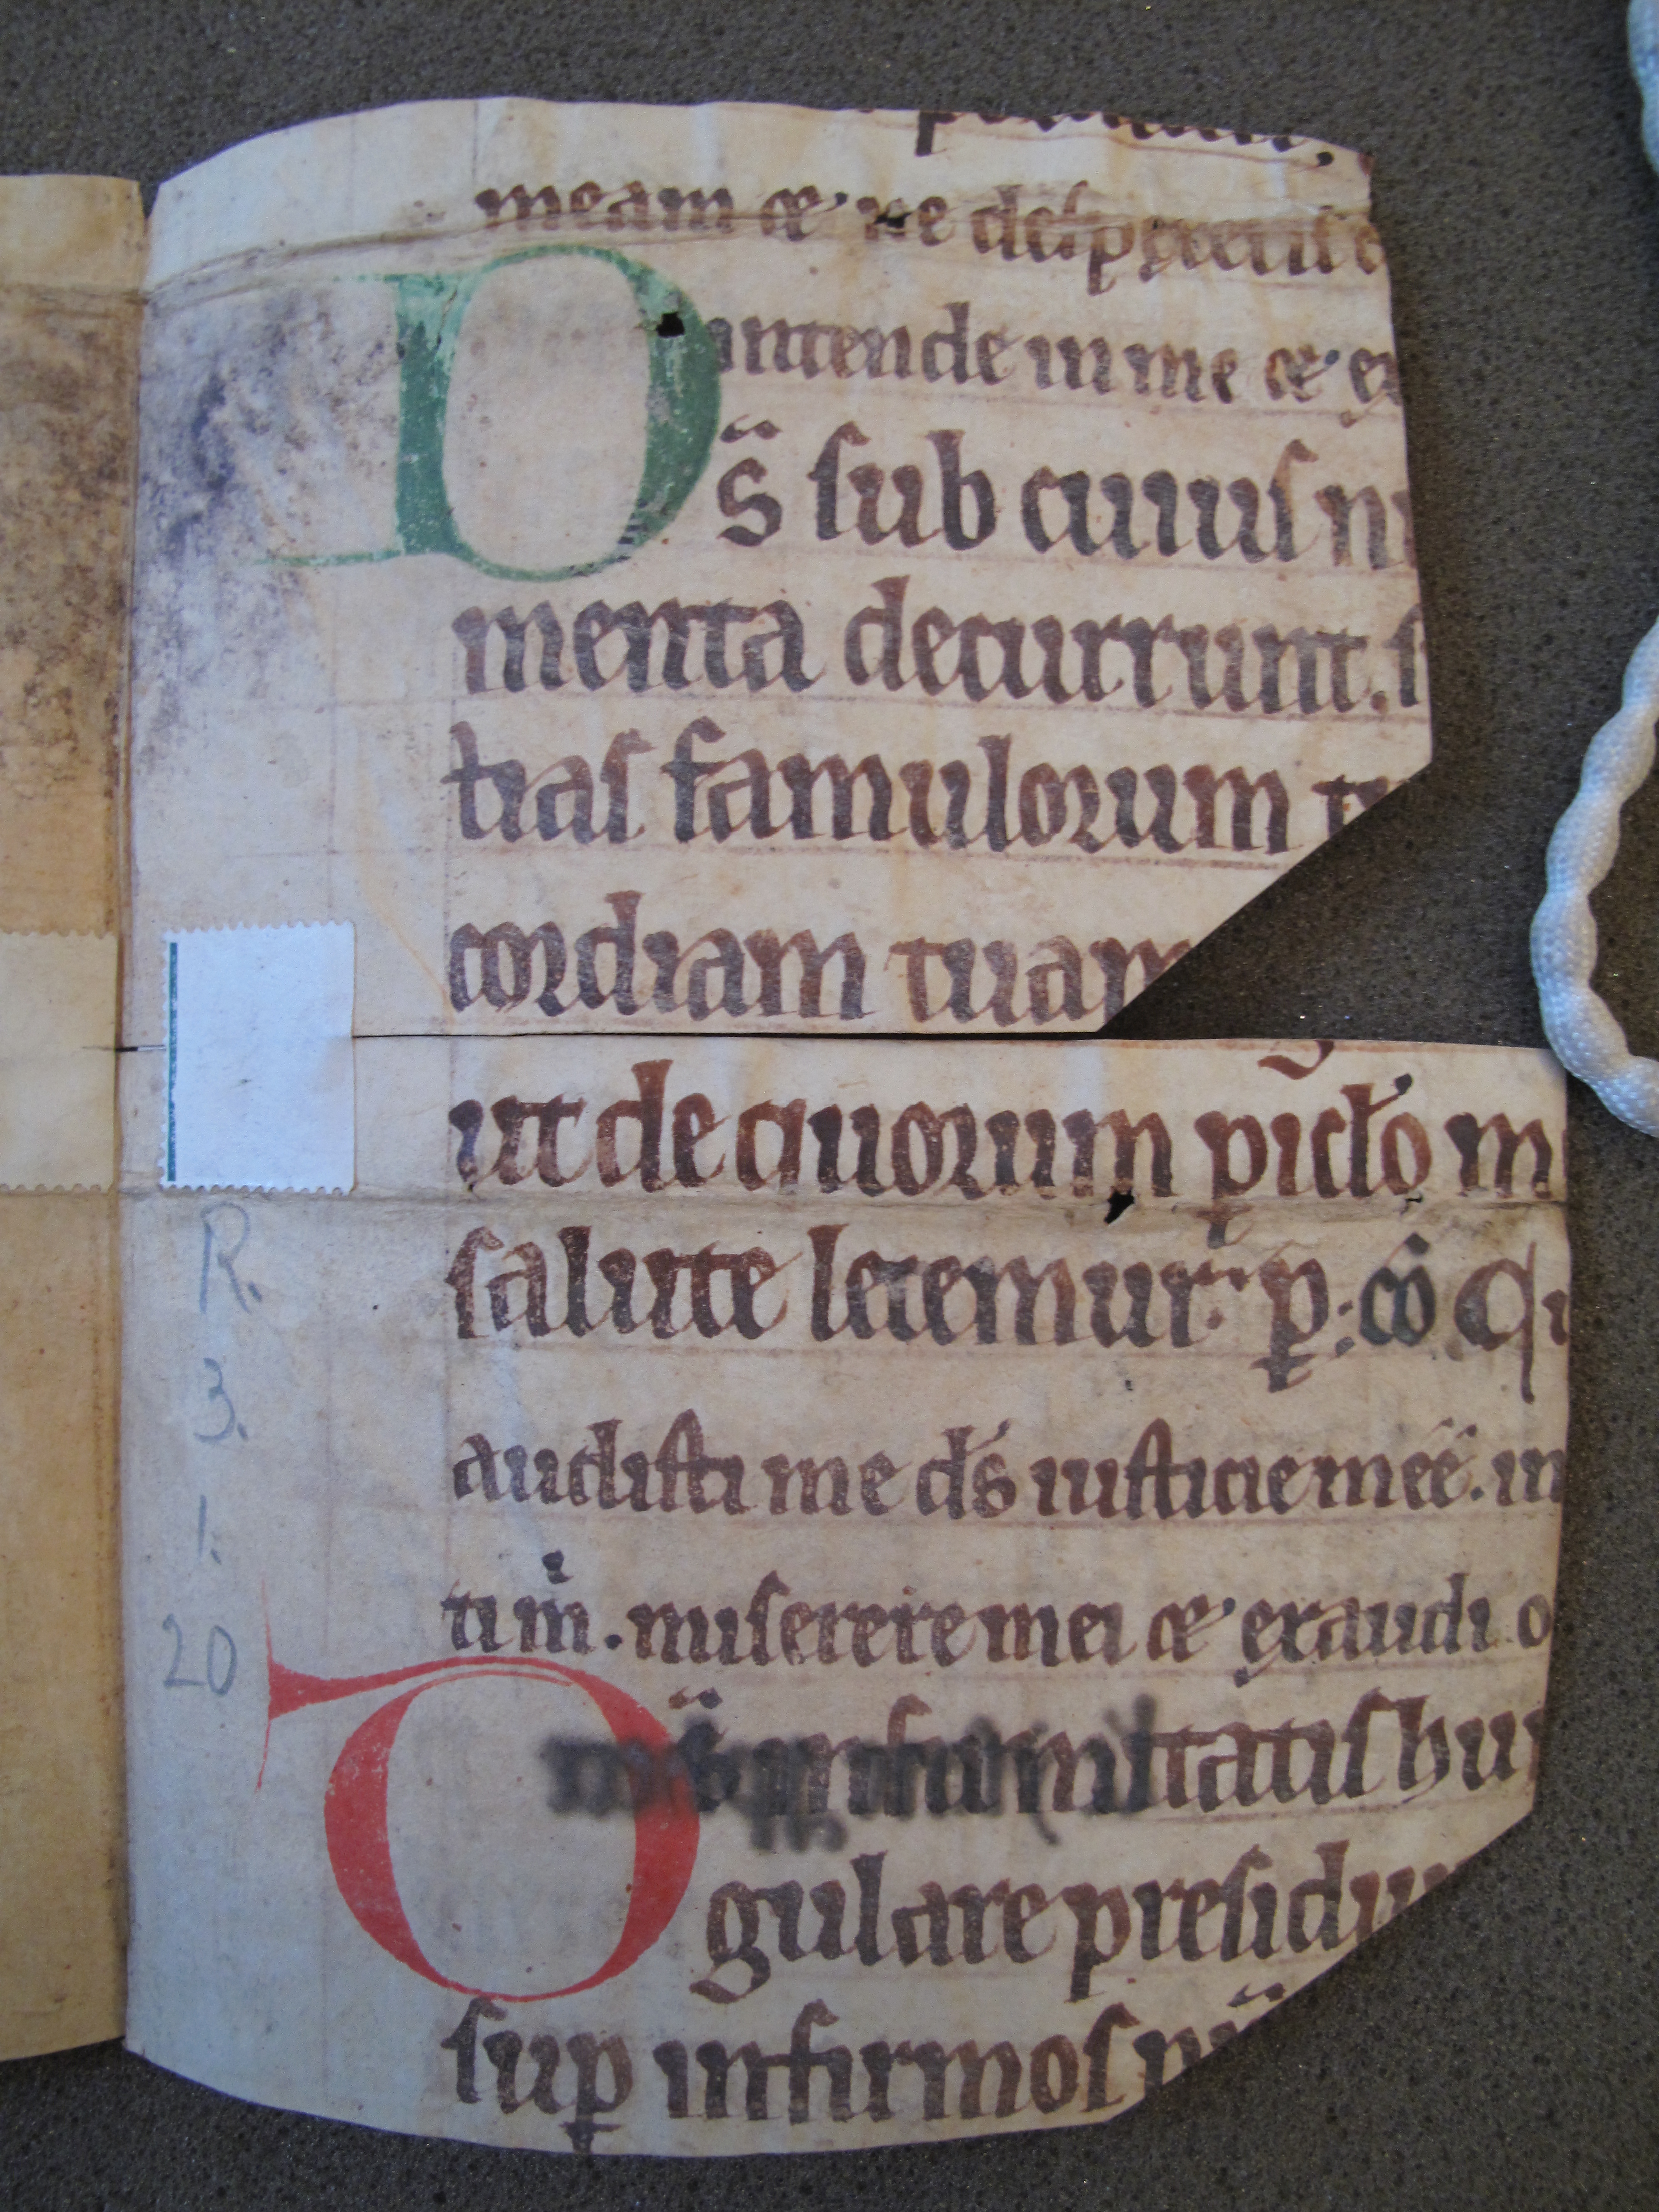 meam & ne despexeris
intende in me & ex
Ds̄ sub cuius nu
menta decurrunt. s
tias famulorum tu
cordiam tuam
ut de quorum pic̄lo m
salute letemur. p̱ : cō Qu
audisti me ds̄ iusticie meē. in
ti m̄. miserere mei & exaudi o
infirmitatis hu
gulare presidiu
sup̱ infirmos
R.
3.
1.
20